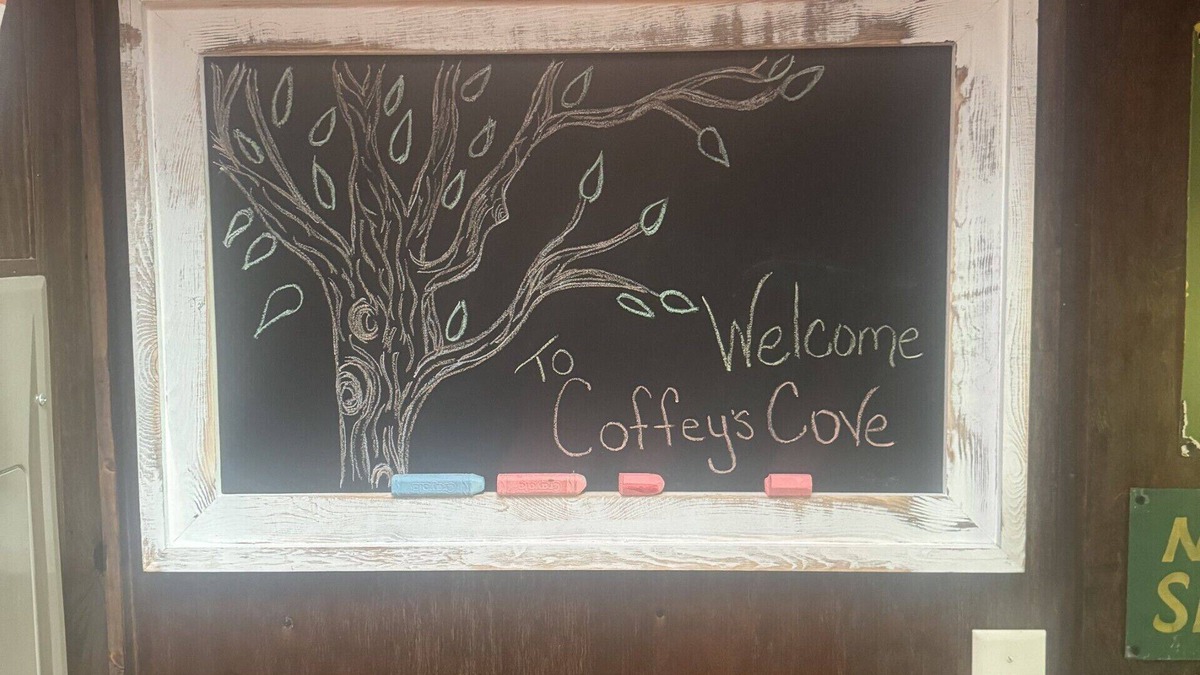 Welcome
To
Coffey's Cove